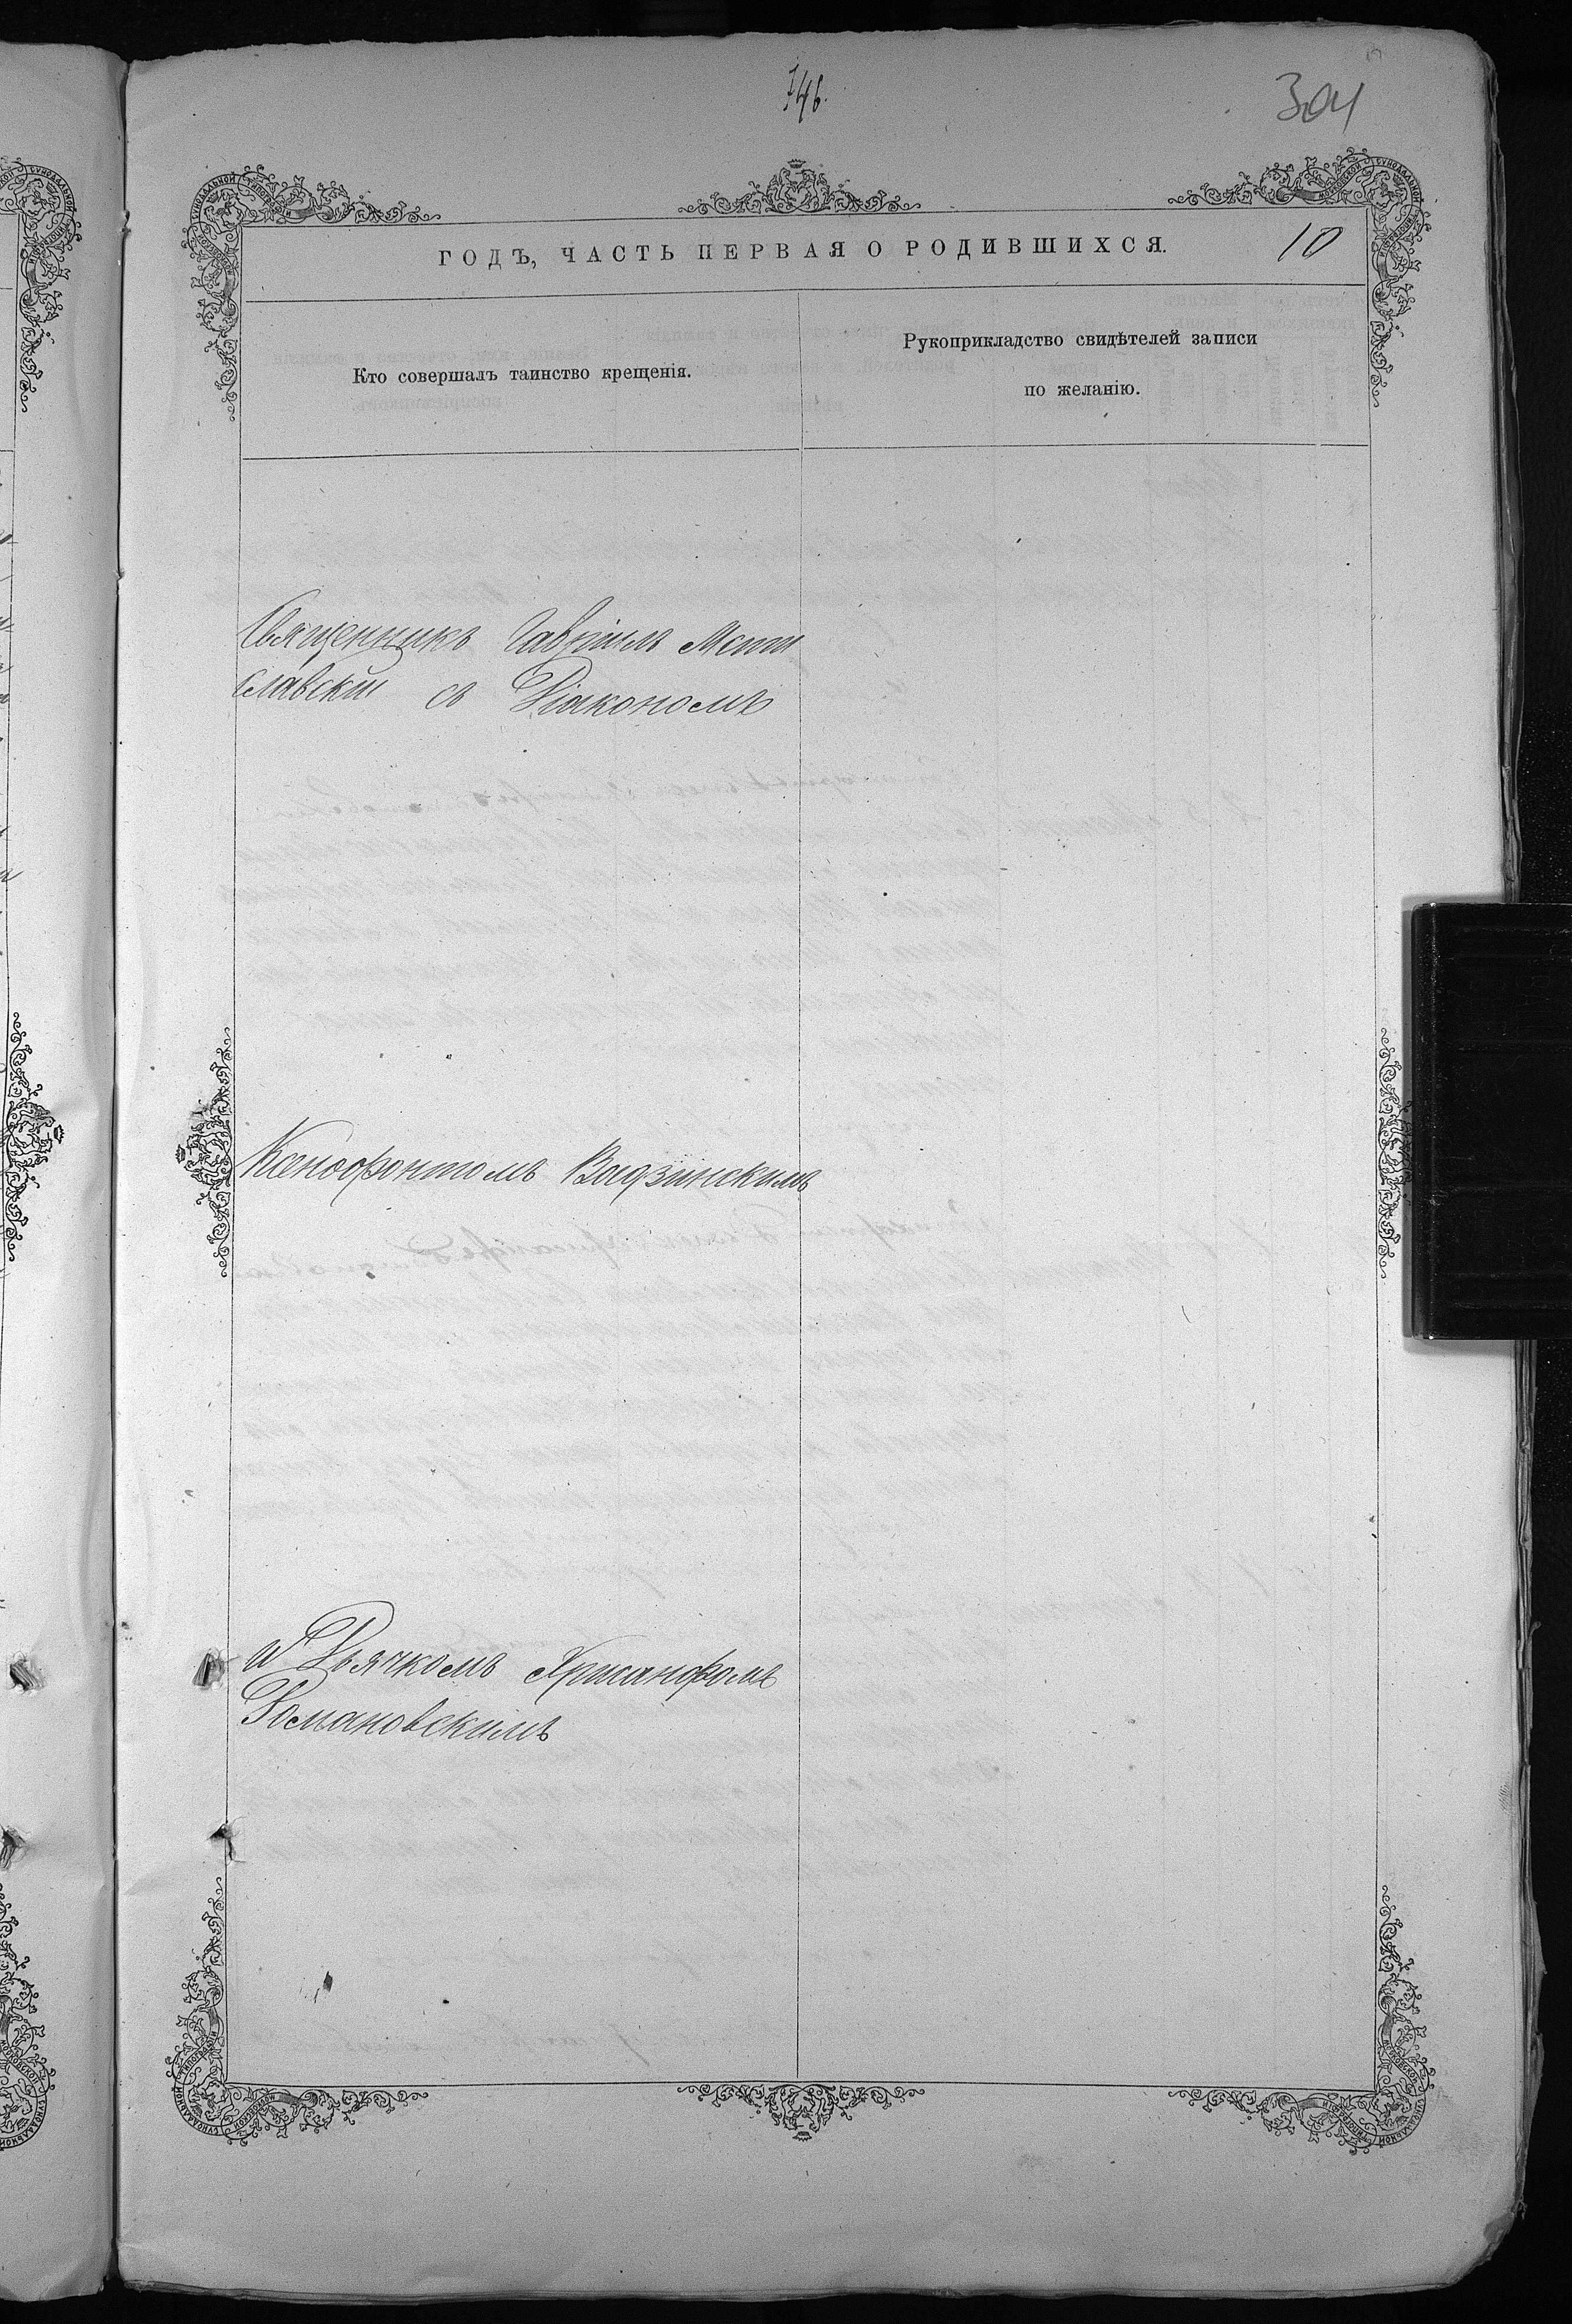 746.
304
ГОДЪ, ЧАСТЬ ПЕРВАЯ О РОДИВШИХСЯ.
10
Кто совершалъ таинство крещенія.
Рукоприкладство свидѣтелей записи
по желанію.
Священникъ Гавріилъ Мсти
славскій съ Діакономъ
Ксенофонтомъ Вадзинскимъ
и Дьячкомъ Хрисанфомъ
Романовскимъ